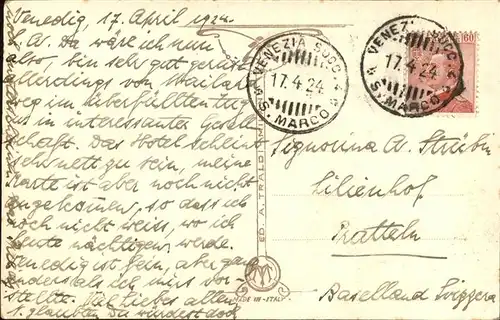 Venedig, 17. April 1924.
L. A. Da wäre ich nun
also, bin sehr gut gereist
allerdings von Mailand
weg im überfüllten Zug
in interessanter Gesell-
schaft. Das Hotel scheint
schon nett zu sein, meine
Karte ist aber noch nicht
angekommen, so dass ich
noch nicht weiss, wo ich
heute nächtigen werde.
Venedig ist fein, aber ganz
anders als ich mir's vor-
stellte. Liebes
glaubten Du würdest doch
VENEZIA SUCC. 4
17.4.24
S. MARCO
VENEZIA SUCC. 4
17.4.24
S. MARCO
60
Signorina A. Strübin
Lilienhof
Pratteln
Baselland Svizzera
ED. A. TRALDI, MI
MADE IN ITALY